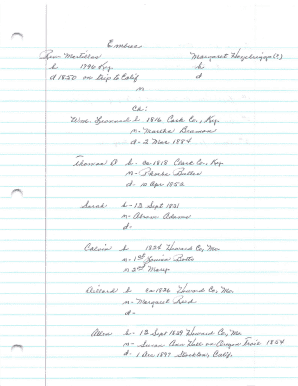 Embree
Rev. Mortillus Margaret Hazelrigg (?)
b 1790 Ky. b
d 1850 on trip to Calif d
m
Ch:
Wm. Leonard b 1816 Clark Co., Ky.
m- Martha Beaman
d- 2 Mar 1884
Thomas D b- ca 1818 Clark Co., Ky.
m- Phoebe Butler
d- 10 Apr. 1852
Sarah b- 13 Sept 1821
m- Abner Adams
d-
Calvin b 1824 Howard Co, Mo.
m- 1st Louisa Botts
m 2nd Mary
Willard b ca 1826 Howard Co, Mo.
m- Margaret Reed
d-
Allen b- 12 Sept 1829 Howard Co, Mo.
m- Susan Ann Hall on Oregon Trail 1854
d- 1 Dec 1897 Stockton, Calif.